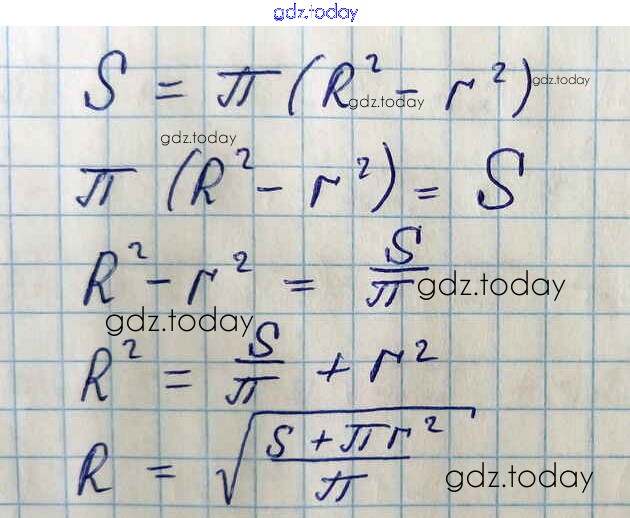 gdz.today
S = π (R² - r²) gdz.today
gdz.today
gdz.today
π (R² - r²) = S
R² - r² = S/π gdz.today
gdz.today
R² = S/π + r²
R = √((S + πr²)/π) gdz.today